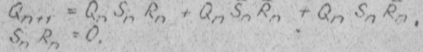 Qₙ₊₁ = Qₙ S̄ₙ R̄ₙ + Q̄ₙ Sₙ R̄ₙ + Qₙ Sₙ R̄ₙ,
Sₙ Rₙ = 0.